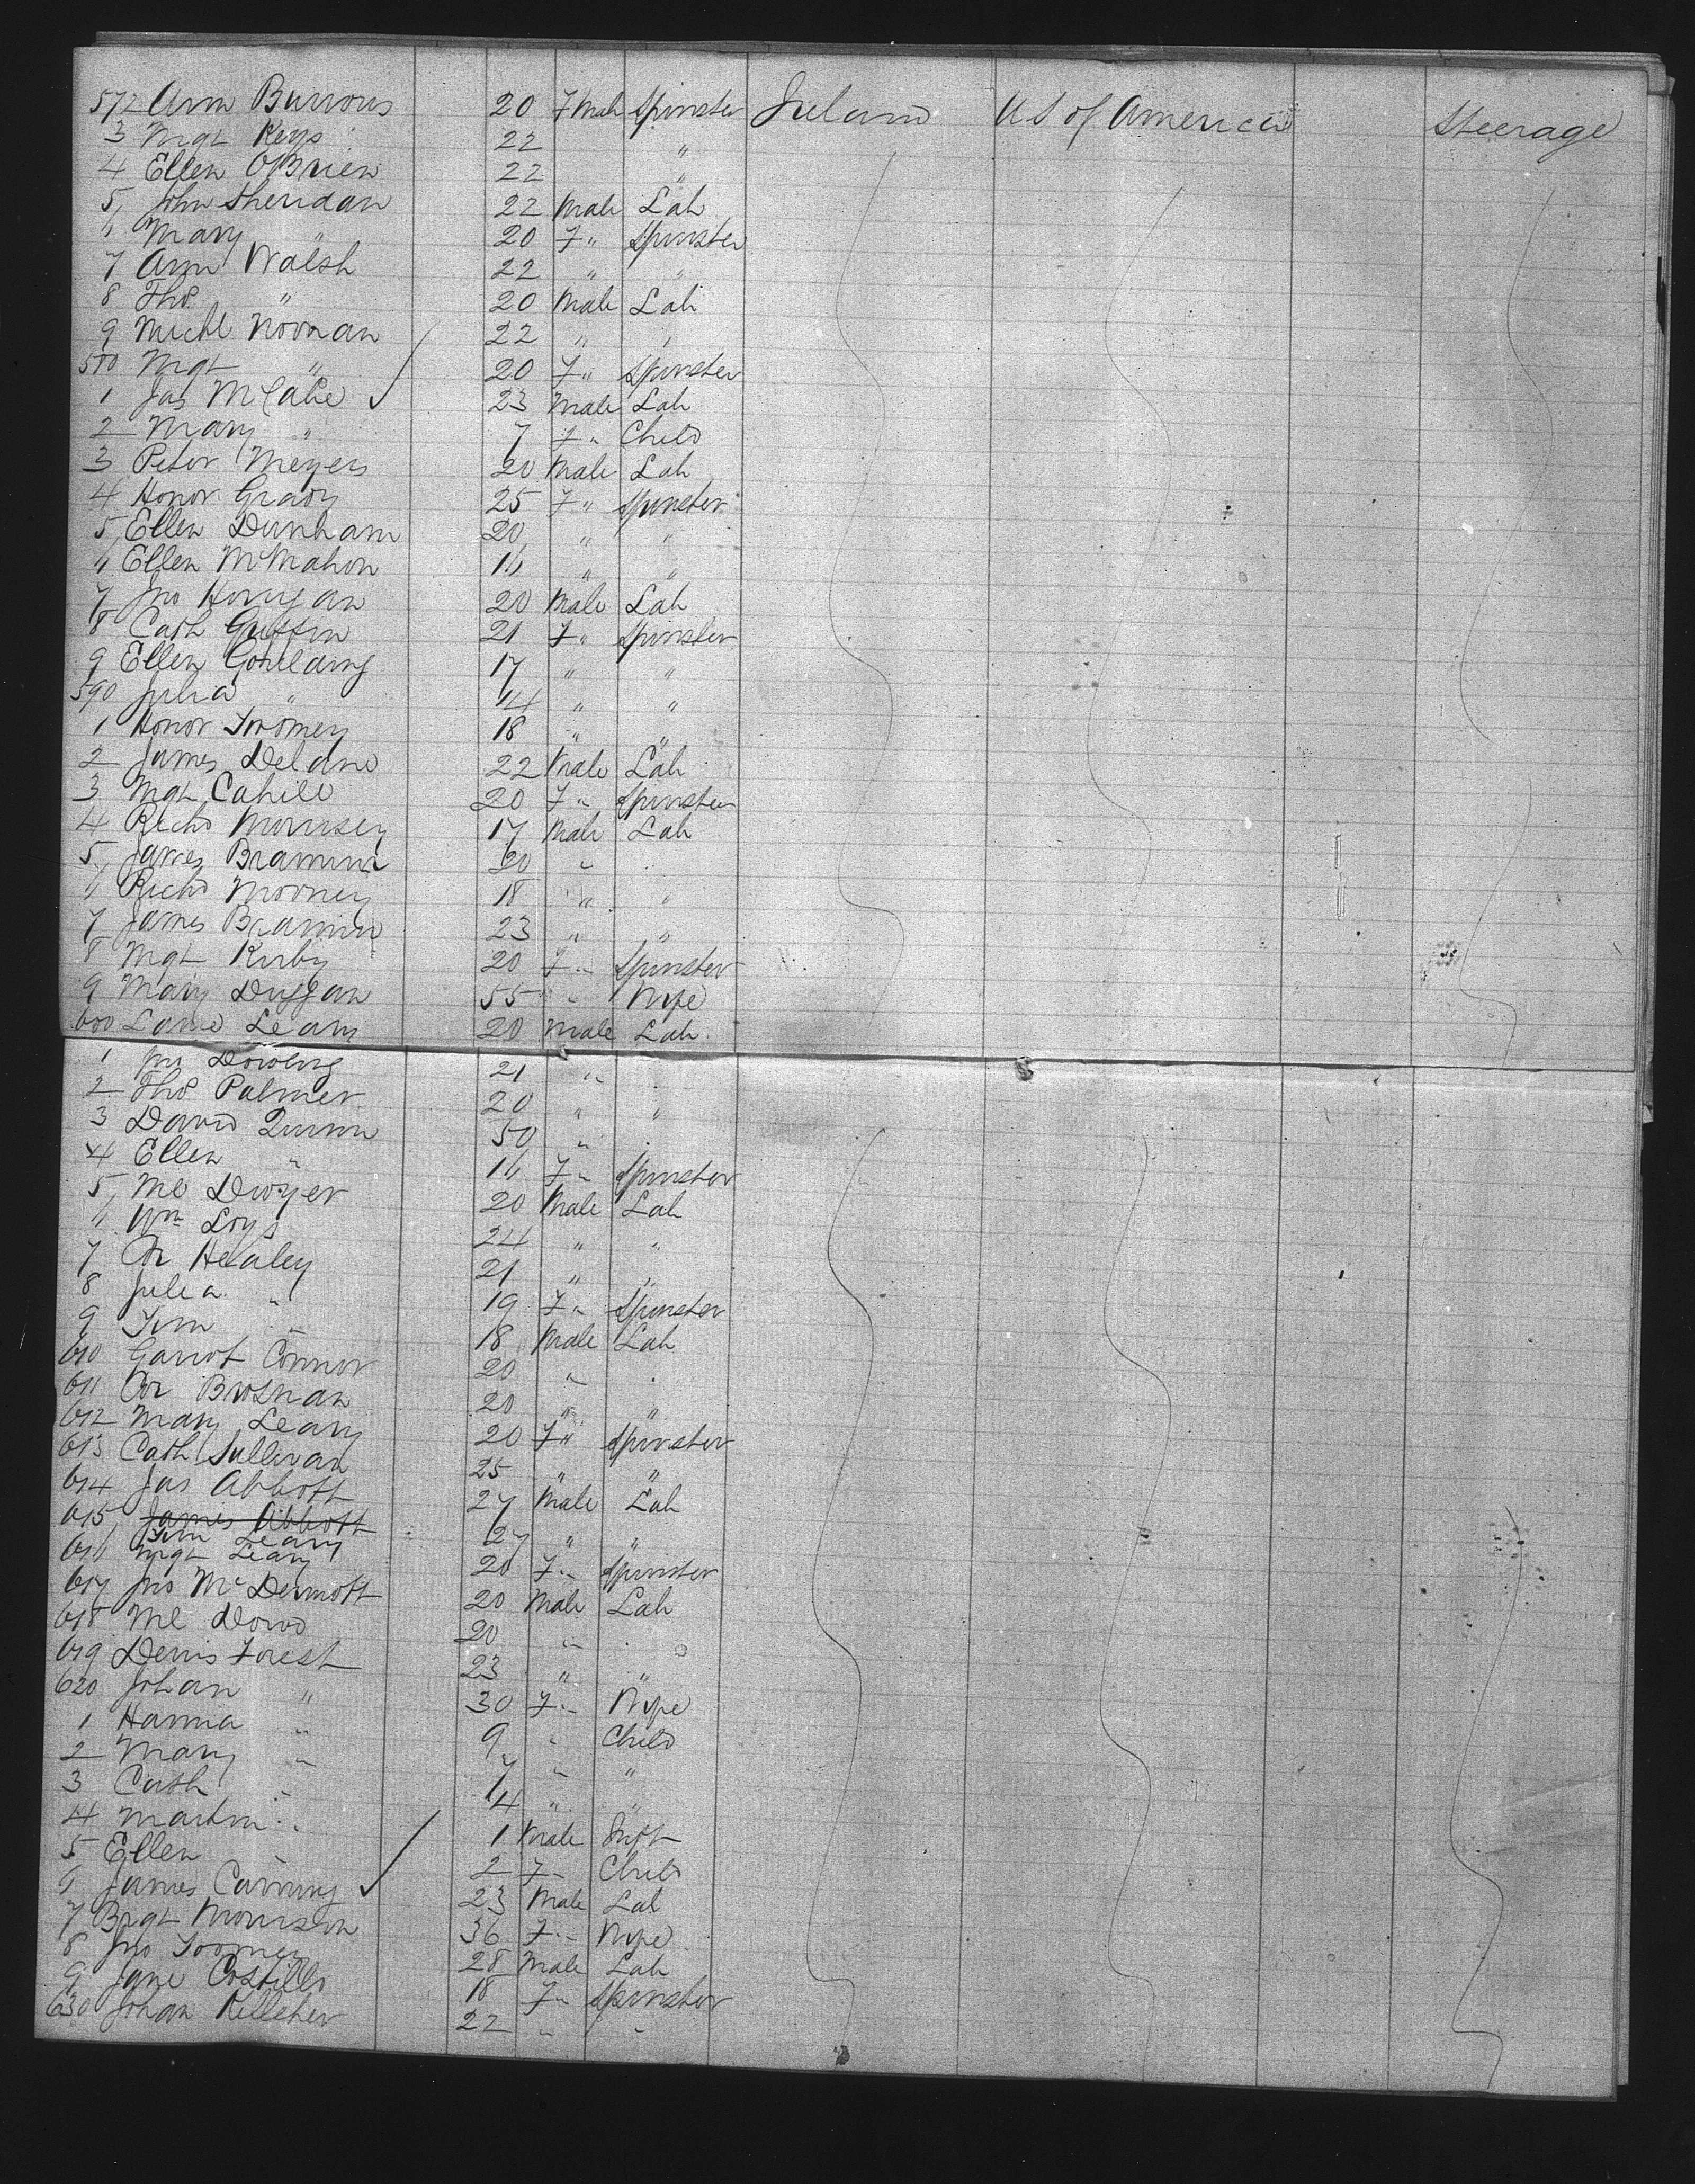 572 Ann Burrows 20 Fmale Spinster Ireland US of America Steerage
3 Mgt Keys 22 "
4 Ellen O'Brien 22 "
5 John Sheridan 22 Male Lab
6 Mary " 20 F " Spinster
7 Ann Walsh 22 " "
8 Thos " 20 Male Lab
9 Michl Noonan 22 " "
580 Mgt " 20 F " Spinster
1 Jas McCabe 23 Male Lab
2 Mary " 7 F " Child
3 Peter Meyers 20 Male Lab
4 Honor Grady 25 F " Spinster
5 Ellen Dunham 20 " "
6 Ellen McMahon 16 " "
7 Jno Horrigan 20 Male Lab
8 Cath Griffin 21 F " Spinster
9 Ellen Goulding 17 " "
590 Julia " 14 " "
1 Honor Twomey 18 " "
2 James Delane 22 Male Lab
3 Mgt Cahill 20 F " Spinster
4 Richd Morrisey 17 Male Lab
5 James 20 "
6 Richd Mooney 18 " "
7 James 23 " "
8 Mgt Kirby 20 F " Spinster
9 Mary Duggan 55 " Wife
600 Leary 20 Male Lab
1 Jno Dowling 21 "
2 Thos Palmer 20 " "
3 David Quinn 50 "
4 Ellen " 16 F " Spinster
5 Ml Dwyer 20 Male Lab
6 Wm 24 " "
7 Cor Healey 21 " "
8 Julia " 19 F " Spinster
9 Tim " 18 Male Lab
610 Garrot Connor 20 "
611 Cor Brosnan 20 " "
612 Mary Leary 20 F " Spinster
613 Cath Sullivan 25 " "
614 Jas Abbott 27 Male Lab
615 James Abbott
Tim Leary 27 " "
616 Mgt Leary 20 F " Spinster
617 Jno McDermott 20 Male Lab
618 Ml Dowd 20 "
619 Denis Forest 23 " "
620 Johan " 30 F " Wife
1 Hanna " 9 " Child
2 Mary " 7 " "
3 Cath " 4 " "
4 Martin " 1 Male Inft
5 Ellen " 2 F " Child
6 James Canning 23 Male Lab
7 Brgt Morrison 36 F " Wife
8 Jno Toomey 28 Male Lab
9 Jane Costillo 18 F " Spinster
630 Johan Kelleher 22 " "